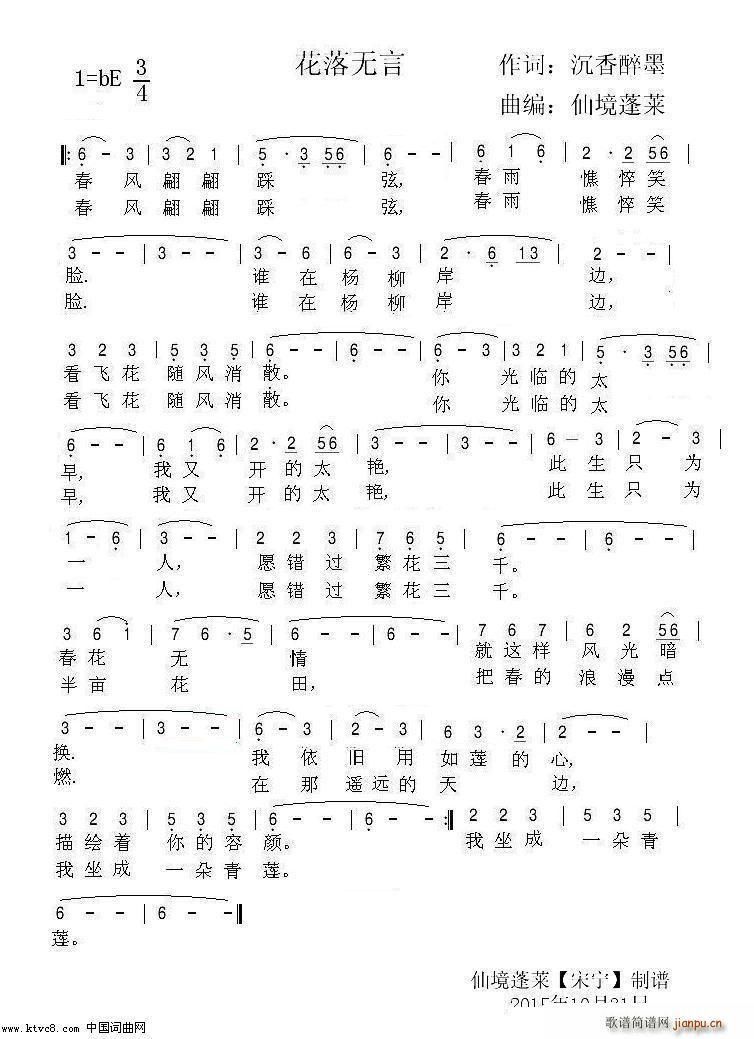 花落无言
1=bE 3/4
作词：沉香醉墨
曲编：仙境蓬莱
‖: 6 - 3 | 3 2 1 | 5 · 3 56 | 6 - - | 6 1 6 | 2 · 2 56 |
春 风 翩 翩 踩 弦, 春 雨 憔 悴 笑
春 风 翩 翩 踩 弦, 春 雨 憔 悴 笑
3 - - | 3 - - | 3 - 6 | 3 - 6 | 2 · 6 13 | 2 - - |
脸. 谁 在 杨 柳 岸 边,
脸. 谁 在 杨 柳 岸 边,
3 2 3 | 5 3 5 | 6 - - | 6 - - | 6 - 3 | 3 2 1 | 5 · 3 56 |
看 飞 花 随 风 消 散。 你 光 临 的 太
看 飞 花 随 风 消 散。 你 光 临 的 太
6 - - | 6 1 6 | 2 · 2 56 | 3 - - | 3 - - | 6 - 3 | 2 - 3 |
早, 我 又 开 的 太 艳, 此 生 只 为
早, 我 又 开 的 太 艳, 此 生 只 为
1 - 6 | 3 - - | 2 2 3 | 7 6 5 | 6 - - | 6 - - |
一 人, 愿 错 过 繁 花 三 千。
一 人, 愿 错 过 繁 花 三 千。
3 6 i | 7 6 · 5 | 3 - - | 3 - - | 7 6 7 | 6 2 56 |
春 花 无 情 就 这 样 风 光 暗
半 亩 花 田, 把 春 的 浪 漫 点
3 - - | 3 - - | 6 - 3 | 2 - 3 | 6 3 · 2 | 2 - - |
换. 我 依 旧 用 如 莲 的 心,
燃. 在 那 遥 远 的 天 边,
3 2 3 | 2 2 3 | 5 3 5 | 6 - - | 6 - - :‖ 2 2 3 | 5 3 5 |
描 绘 着 你 的 容 颜。 我 坐 成 一 朵 青
我 坐 成 一 朵 青 莲。
6 - - | 6 - - | 6 - - ‖
莲。
仙境蓬莱【宋宁】制谱
2015年10月31日
www.ktvc8.com 中国词曲网
歌谱简谱网
jianpu.cn